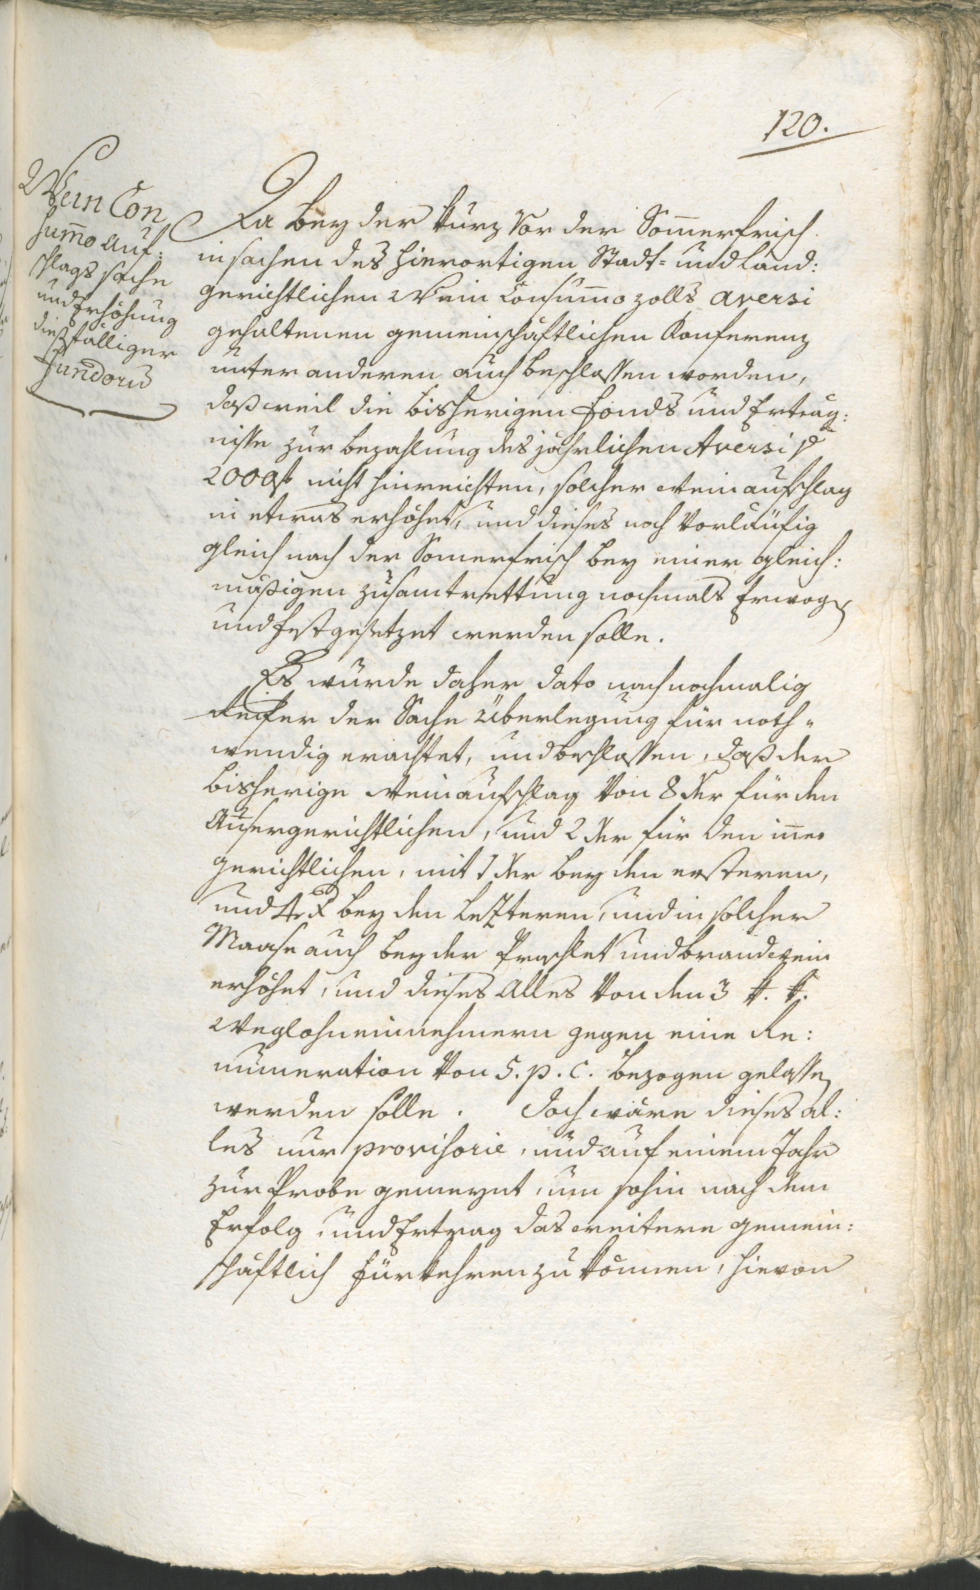 120.
Wein Con
summo Auf:
schlags sache
und Erhöhung
dießfälliger
Fundorum
Da bey der kurz vor der Sommerfrisch
in sachen des hierortigen Stadt- und Land:
gerichtlichen Wein Consummozolls Aversi
gehaltenen gemeinschäftlichen Konferenz
unter anderen auch beschlossen worden,
daß weil die bisherigen Fonds und Erträg:
nisse zur bezahlung des jährlichen Aversi p
2000f nicht hinreichten, solcher Weinaufschlag
in etwas erhöhet, und dieses noch vorläufig
gleich nach der Somerfrisch bey einer gleich:
mäßigen zusamtrettung nochmals Erwogen
und festgesetzet werden solle.
Es wurde daher dato nach nochmalig
Reifer der Sache Überlegung für noth-
wendig erachtet, und beschlossen, daß der
bisherige Weinaufschlag von 8 kr für den
Ausergerichtlichen, und 2 kr für den inner
gerichtlichen, mit 1 kr bey den ersteren,
und bey den Lezteren, und in solcher
Maase auch bey der Praschlet und brandwein
erhöhet, und dieses Alles von den 3
Weglohneinnehmern gegen eine Re:
numeration von 5. p. C. bezogen gelassen
werden solle. Doch wäre dieses al:
les nur provisorie, und auf einem Jahr
zur Probe gemeynt, um sohin nach dem
Erfolg, und Ertrag das weitere gemein:
schäftlich fürkehren zu können, hievon